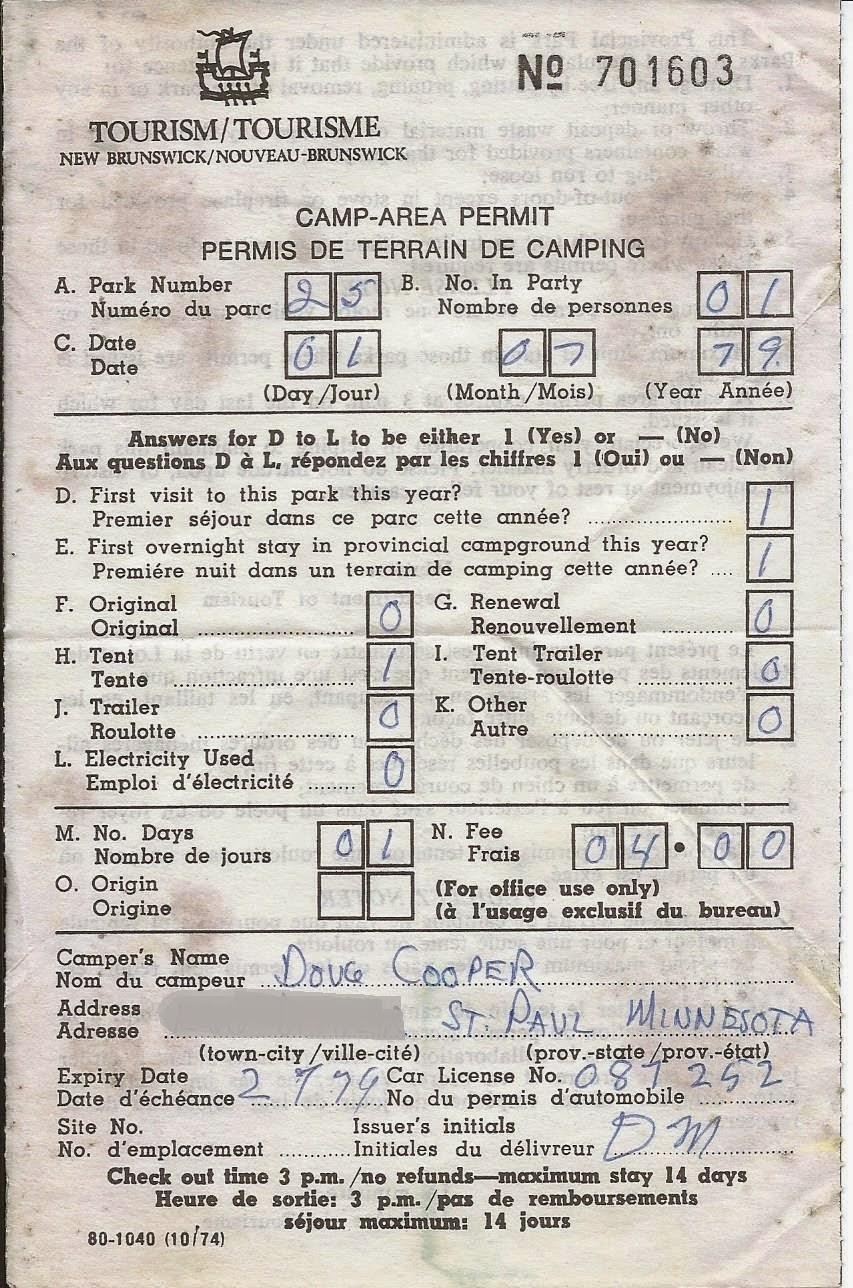 Nº 701603
TOURISM/TOURISME
NEW BRUNSWICK/NOUVEAU-BRUNSWICK
CAMP-AREA PERMIT
PERMIS DE TERRAIN DE CAMPING
A. Park Number B. No. In Party
Numéro du parc 25 Nombre de personnes 01
C. Date
Date 01 07 79
(Day/Jour) (Month/Mois) (Year Année)
Answers for D to L to be either 1 (Yes) or — (No)
Aux questions D à L, répondez par les chiffres 1 (Oui) ou — (Non)
D. First visit to this park this year?
Premier séjour dans ce parc cette année? 1
E. First overnight stay in provincial campground this year?
Premiére nuit dans un terrain de camping cette année? 1
F. Original G. Renewal
Original 0 Renouvellement 0
H. Tent I. Tent Trailer
Tente 1 Tente-roulotte 0
J. Trailer K. Other
Roulotte 0 Autre 0
L. Electricity Used
Emploi d'électricité 0
M. No. Days N. Fee
Nombre de jours 01 Frais 04.00
O. Origin (For office use only)
Origine (à l'usage exclusif du bureau)
Camper's Name
Nom du campeur DOUG COOPER
Address
Adresse ST. PAUL MINNESOTA
(town-city/ville-cité) (prov.-state/prov.-état)
Expiry Date Car License No.
Date d'échéance 2 7 79 No du permis d'automobile 087 252
Site No. Issuer's initials
No. d'emplacement Initiales du délivreur DM
Check out time 3 p.m./no refunds—maximum stay 14 days
Heure de sortie: 3 p.m./pas de remboursements
séjour maximum: 14 jours
80-1040 (10/74)